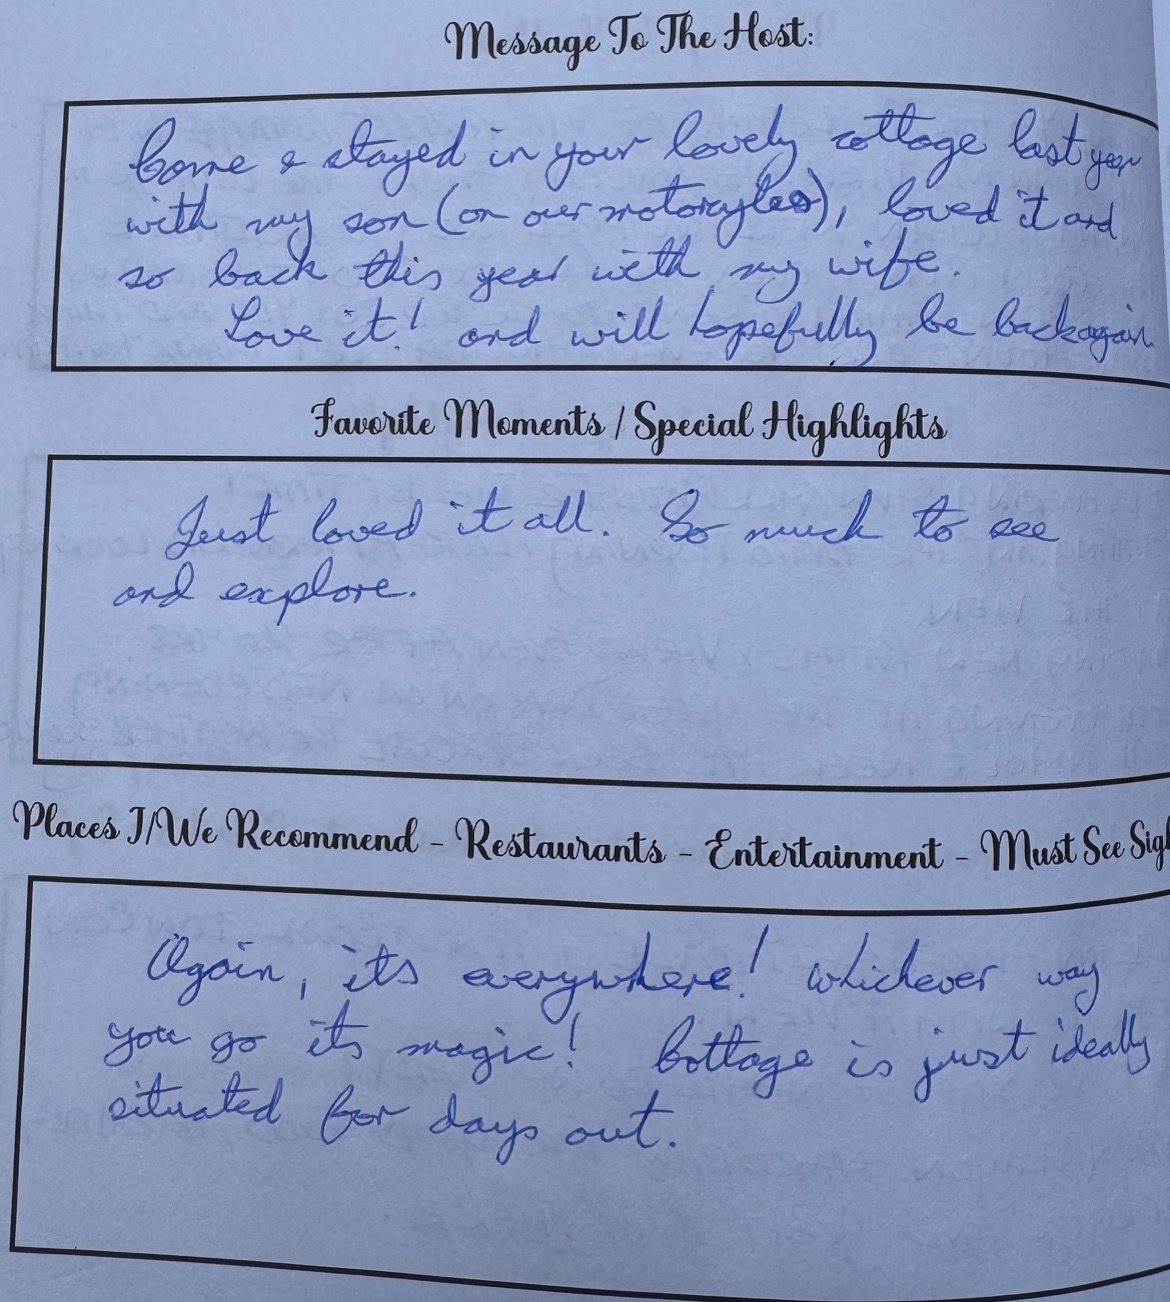 Message To The Host:
Came & stayed in your lovely cottage last year
with my son (on our motorcycles), loved it and
so back this year with my wife.
Love it! and will hopefully be back again
Favorite Moments / Special Highlights
Just loved it all. So much to see
and explore.
Places I/We Recommend - Restaurants - Entertainment - Must See
Again, its everywhere! whichever way
you go its magic! Cottage is just ideally
situated for days out.